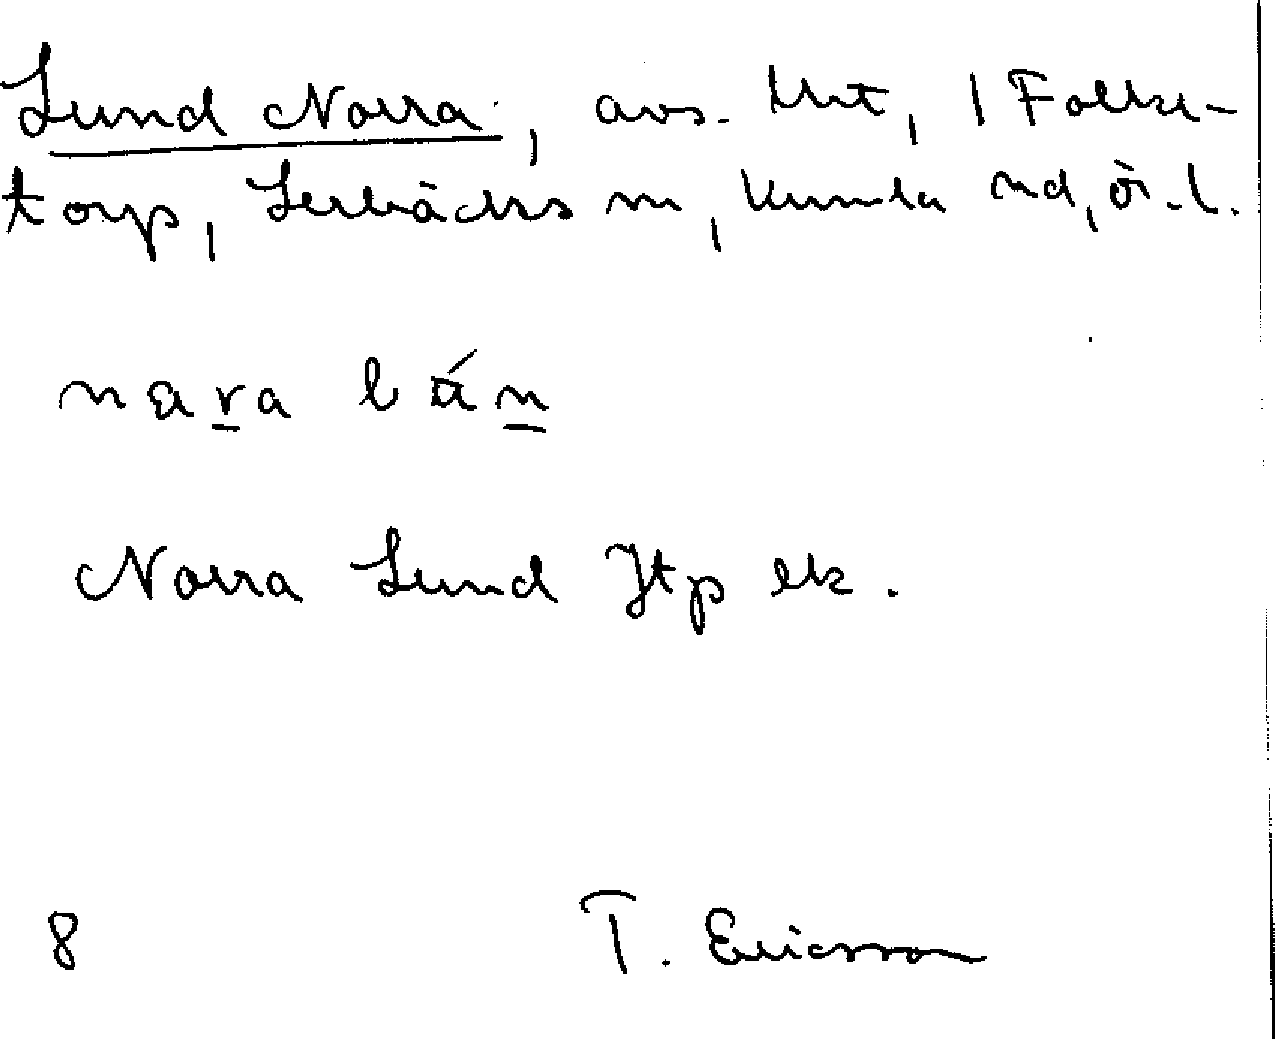 Lund Norra, avs. lht, 1 Folke-
torp, Lerbäcks sn, Kumla hd, ör. l.
nara lán
Norra Lund Jtp ek.
8 T. Ericsson